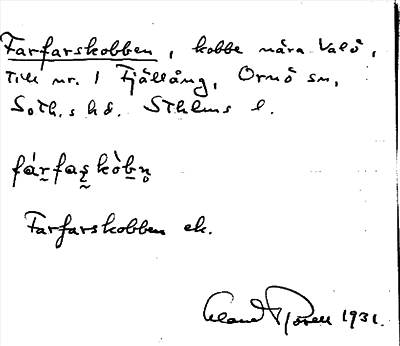 Farfarskobben, kobbe nära Valö,
Till nr. 1 Fjällång, Ornö sn,
Soth.s hd. Sthlms l.
fárfas̨kòbn̥
Farfarskobben ek.
1931.